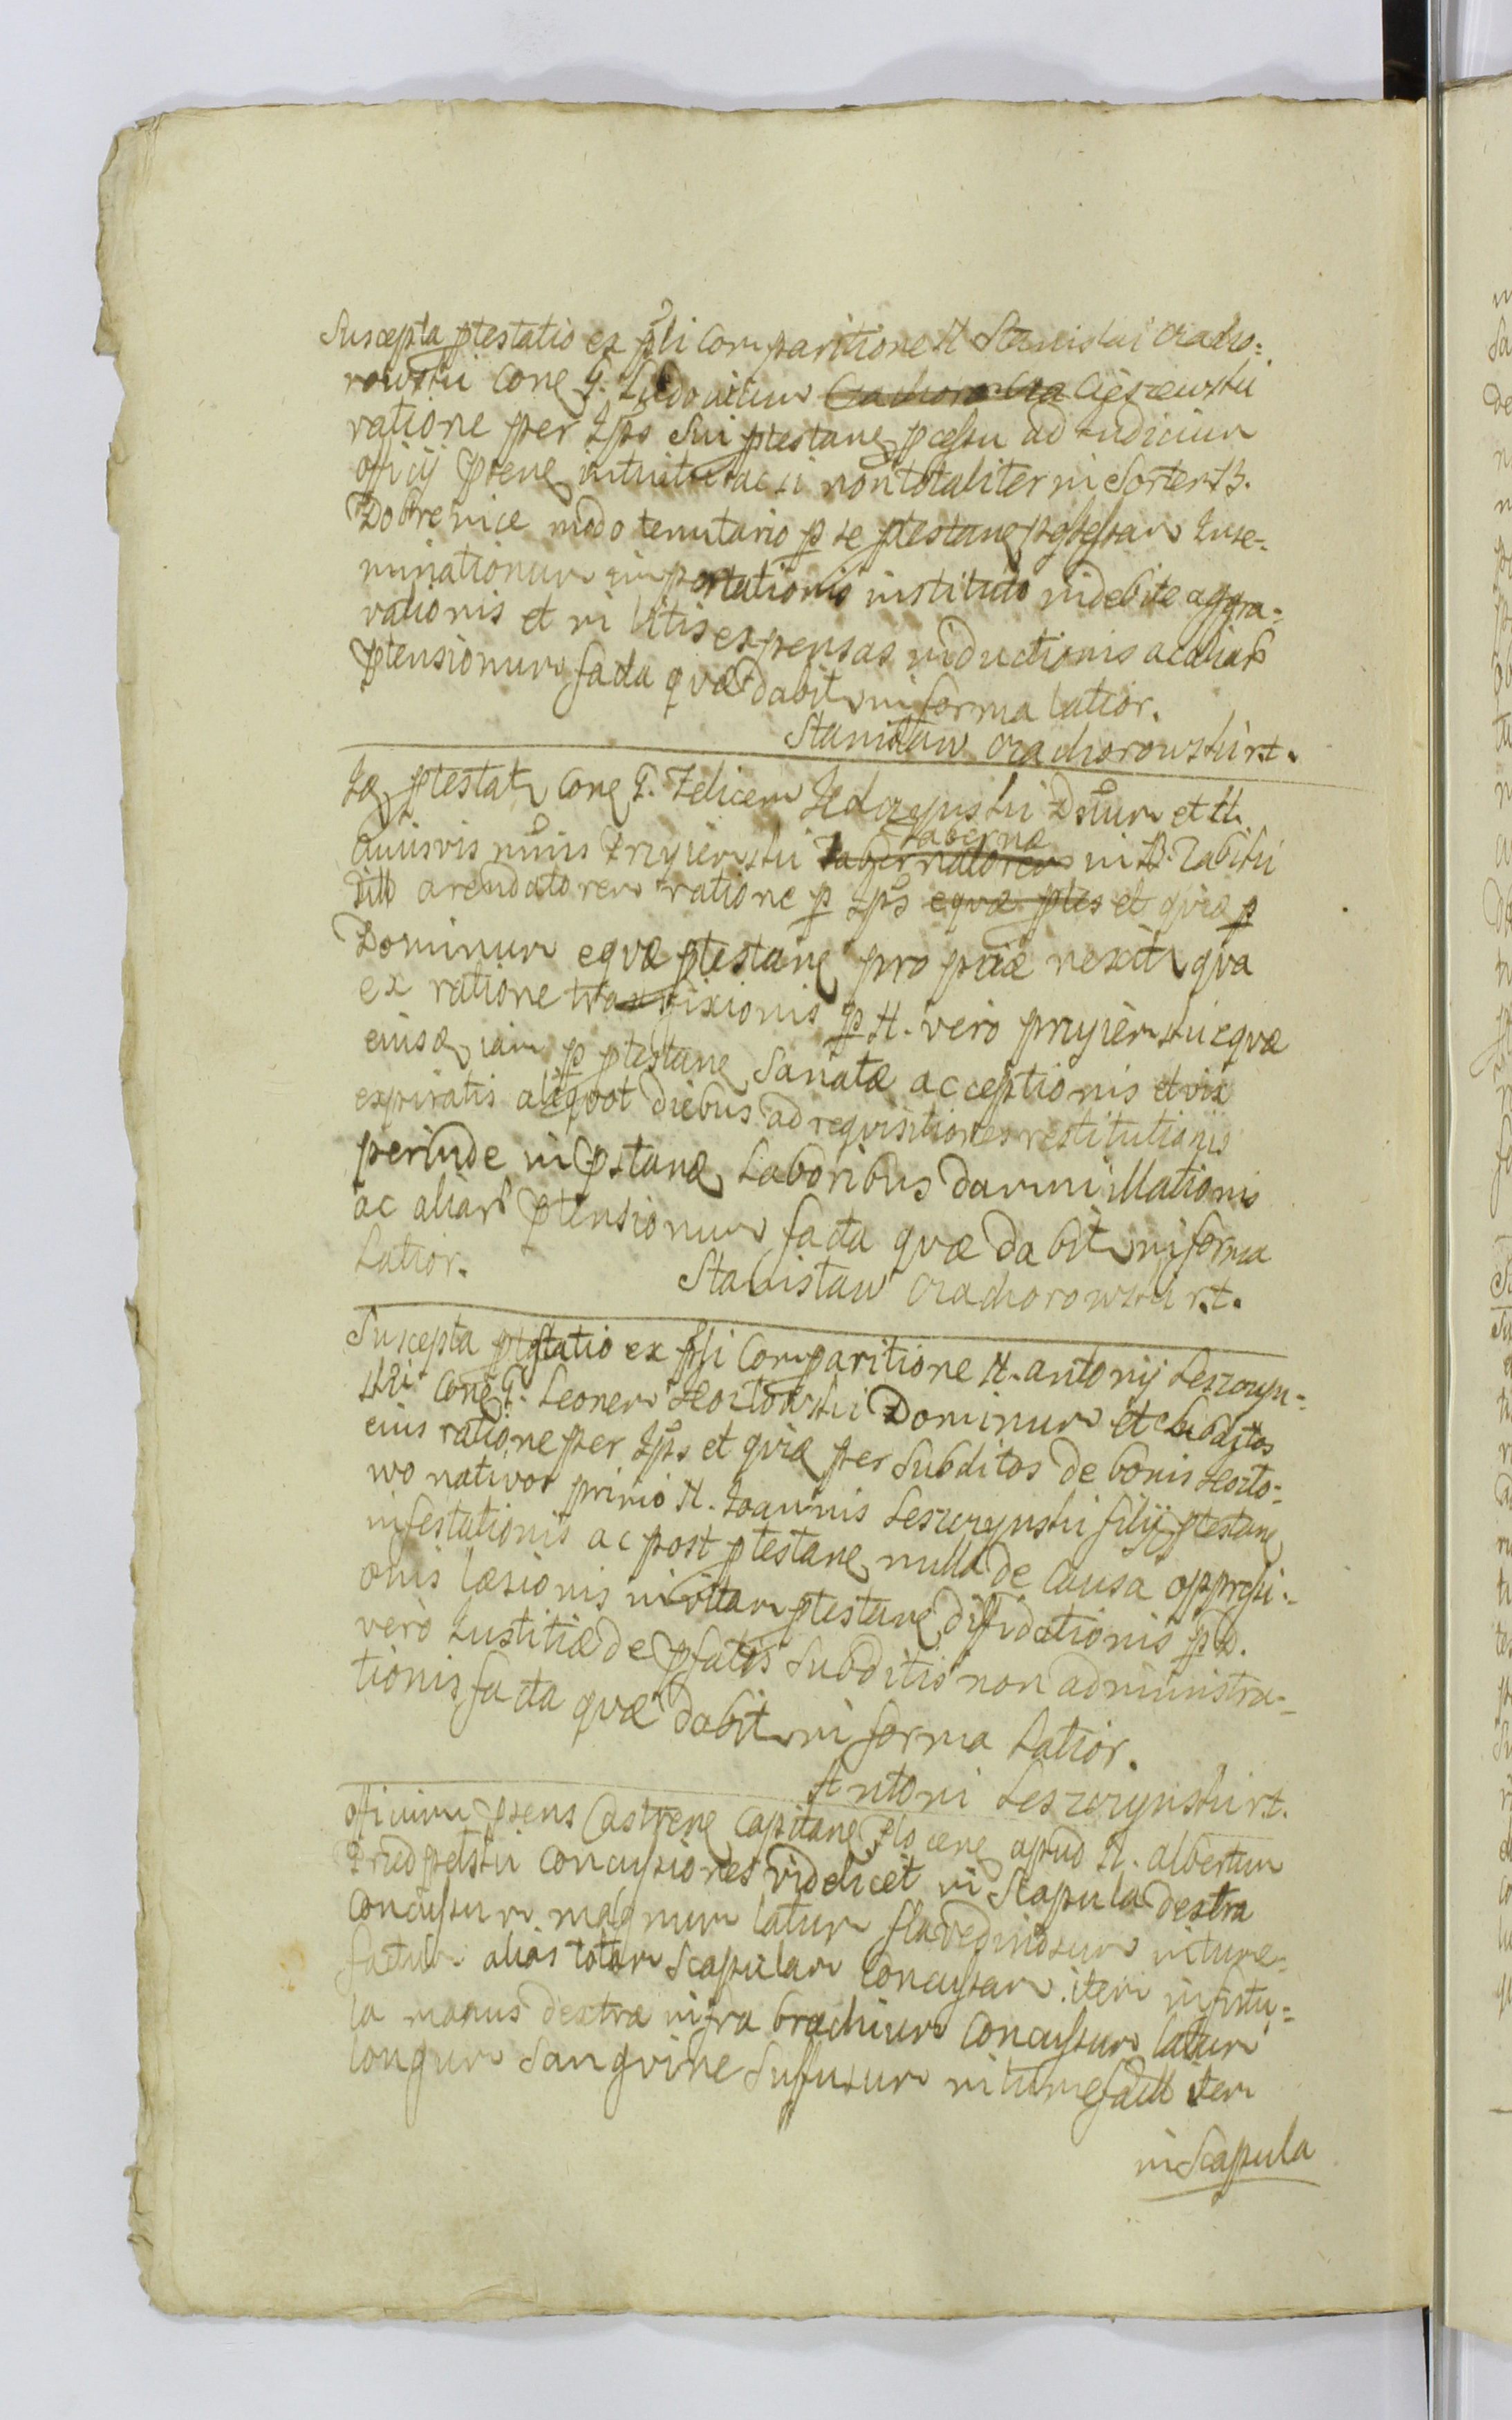 Suscepta ptestatio ex psli Comparitione N Stanislai Ciacho-
rowski Cone G. Ludovicum Ciachorowskia Cieszewski
ratione per Ipso Sui ptestane pcessu ad Iudicium
officij psene intuitu ac si non totaliter in Sortem B.
Dobrenice modo tenutario p se ptestane possessam Inse-
minationum importationis instituto indebite aggra-
vationis et in litis expensas inductionis ac aliar
ptensionum facta quæ dabit in forma latior.
Stanisław Ciachorowski rt.
Iq ptestat Cone G. Felicem Dnum et N.
Cuiusvis nnis Prujierski tabernæ Tabernatorem in B.
dill arendatorem ratione p Ips equæ ptes et quia p
Dominum equæ ptestane pro pciæ nexit qva
ex ratione transfixionis p N. vero prujierski equæ
eiusq iam p ptestane Sanatæ acceptionis et vix
expiratis aliquot diebus ad requisitiones restitutionis
perinde in pstane Laboribus damni illationis
ac aliar ptensionum facta quæ dabit in forma
Latior. Stanisław Ciachorowski r.t.
Suscepta ptestatio ex psli Comparitione N. Antonij Leszczyn-
ski Cone G. Leonem Kozłowski Dominum et Subditos
eius ratione per Ips et quia per Subditos de bonis Kozło-
wo nativos primo N. Ioannis Leszczynski filij ptestane
infestationis ac post ptestane nulla de Causa oppressi-
onis læsionis in vitam ptestane diffidationis p D.
vero Iustitiæ de pfatis Subditis non administra-
tionis facta quæ dabit in forma Latior.
Antoni Leszczynski rt.
Officium psens Castrene Capitane Plocene apud N. Albertum
Concussiones videlicet in Scapula dextra
Concussum magnum latum flavedinosum intume-
factum alias totam Scapulam Concussam. item in fistu-
la manus dextræ infra brachium Concussum latum
longum Sangvine Suffusum intumefactt item
in Scapula